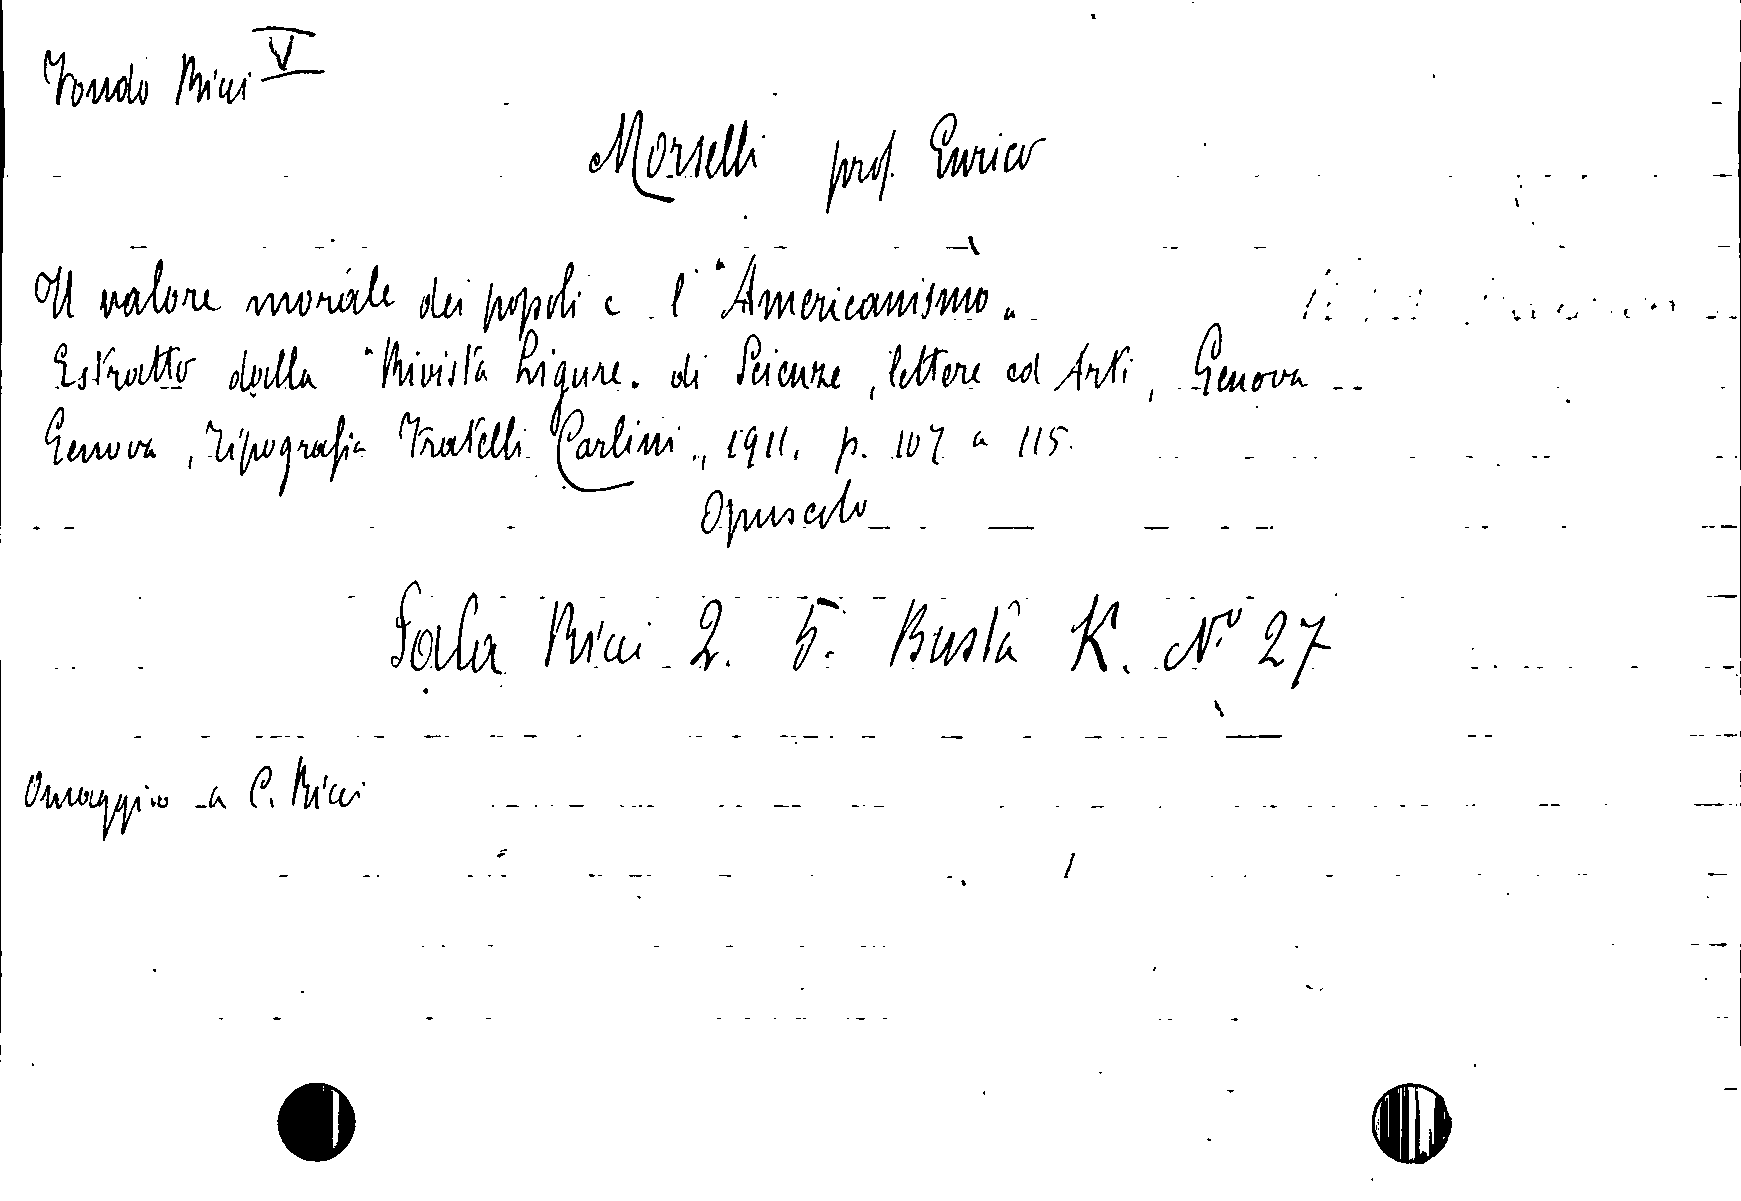 Fondo Ricci V
Morselli prof. Enrico
Il valore morale dei popoli e l'"Americanismo"
Estratto dalla "Rivista Ligure" di Scienze, lettere ed Arti, Genova
Genova, Tipografia Fratelli Carlini, 1911. p. 107 a 115.
Opuscolo
Sala Ricci 2. 5. Busta K. No 27
Omaggio a C. Ricci